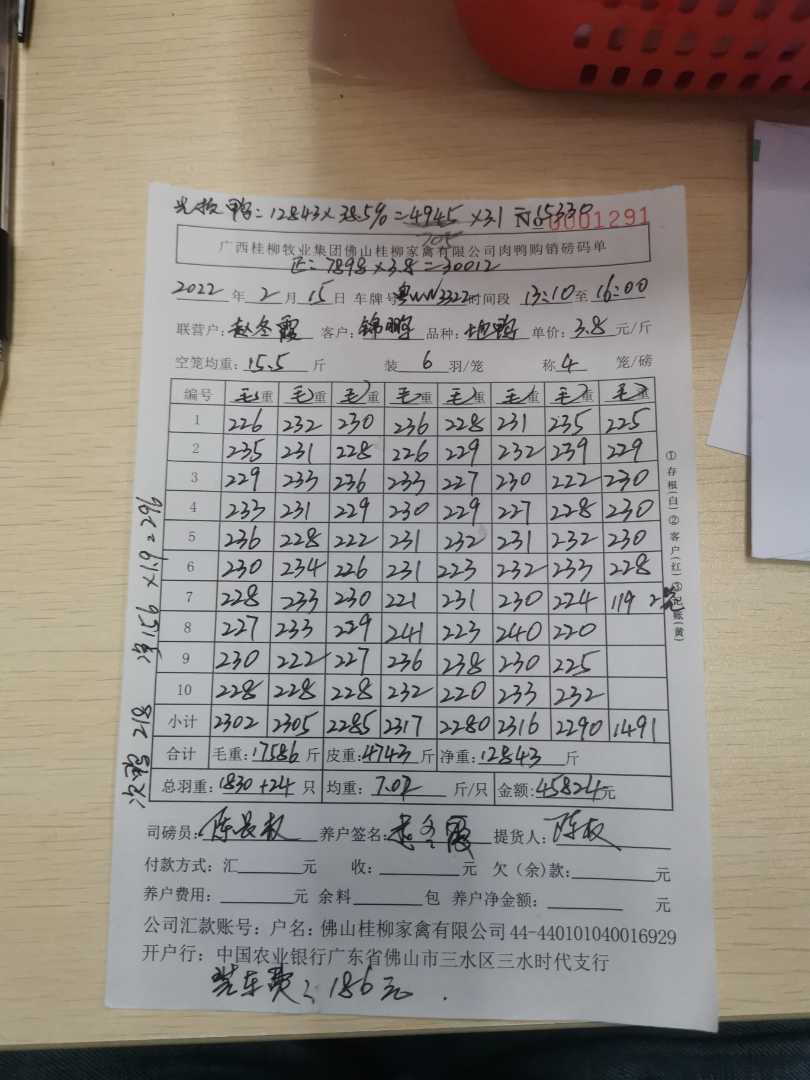 光板鸭:12843×38.5%=4945×3.1=15330
№0001291
广西桂柳牧业集团佛山桂柳家禽有限公司肉鸭购销磅码单
正:7898×3.8=30012
2022年2月15日 车牌号 时间段 13:10至16:00
联营户:赵冬霞 客户:锦鹏 品种: 单价:3.8元/斤
空笼均重:15.5斤 装6羽/笼 称4笼/磅
编号 毛重 毛重 毛重 毛重 毛重 毛重 毛重 毛重
1 226 232 230 236 228 231 235 225
2 235 231 228 226 229 232 239 229
3 229 233 236 233 227 230 222 230
4 233 231 229 230 229 227 228 230
5 236 228 222 231 232 231 232 230
6 230 234 226 231 223 232 233 228
7 228 233 230 221 231 230 224 119 2笼
8 227 233 229 241 223 240 220
9 230 222 227 236 238 230 225
10 228 228 228 232 220 233 232
小计 2302 2305 2285 2317 2280 2316 2290 1491
合计 毛重:17586斤 皮重:4743斤 净重:12843斤
总羽重:1830+24只 均重:7.02斤/只 金额:45824元
司磅员: 养户签名:赵冬霞 提货人:陈权
付款方式:汇 元 收: 元 欠(余)款: 元
养户费用: 元 余料 包 养户净金额: 元
公司汇款账号:户名:佛山桂柳家禽有限公司44-440101040016929
开户行:中国农业银行广东省佛山市三水区三水时代支行
装车费:186元.
①存根(白)②客户(红)③记账(黄)
次鸭 218 净156×1.9=296